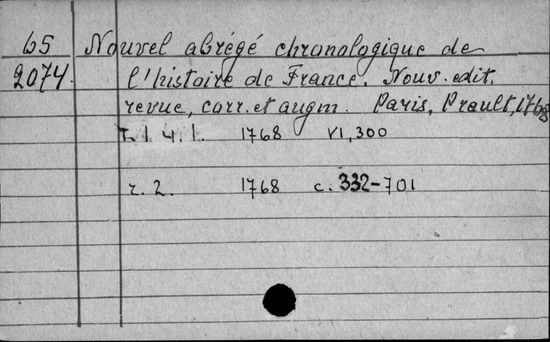 65 Nouvel abrégé chronologique de
2074. l'histoire de France. Nouv. edit.
revue, corr. et augm. Paris, Prault, 1768
т. 1. ч. 1. 1768 VI, 300
т. 2. 1768 с. 332-701